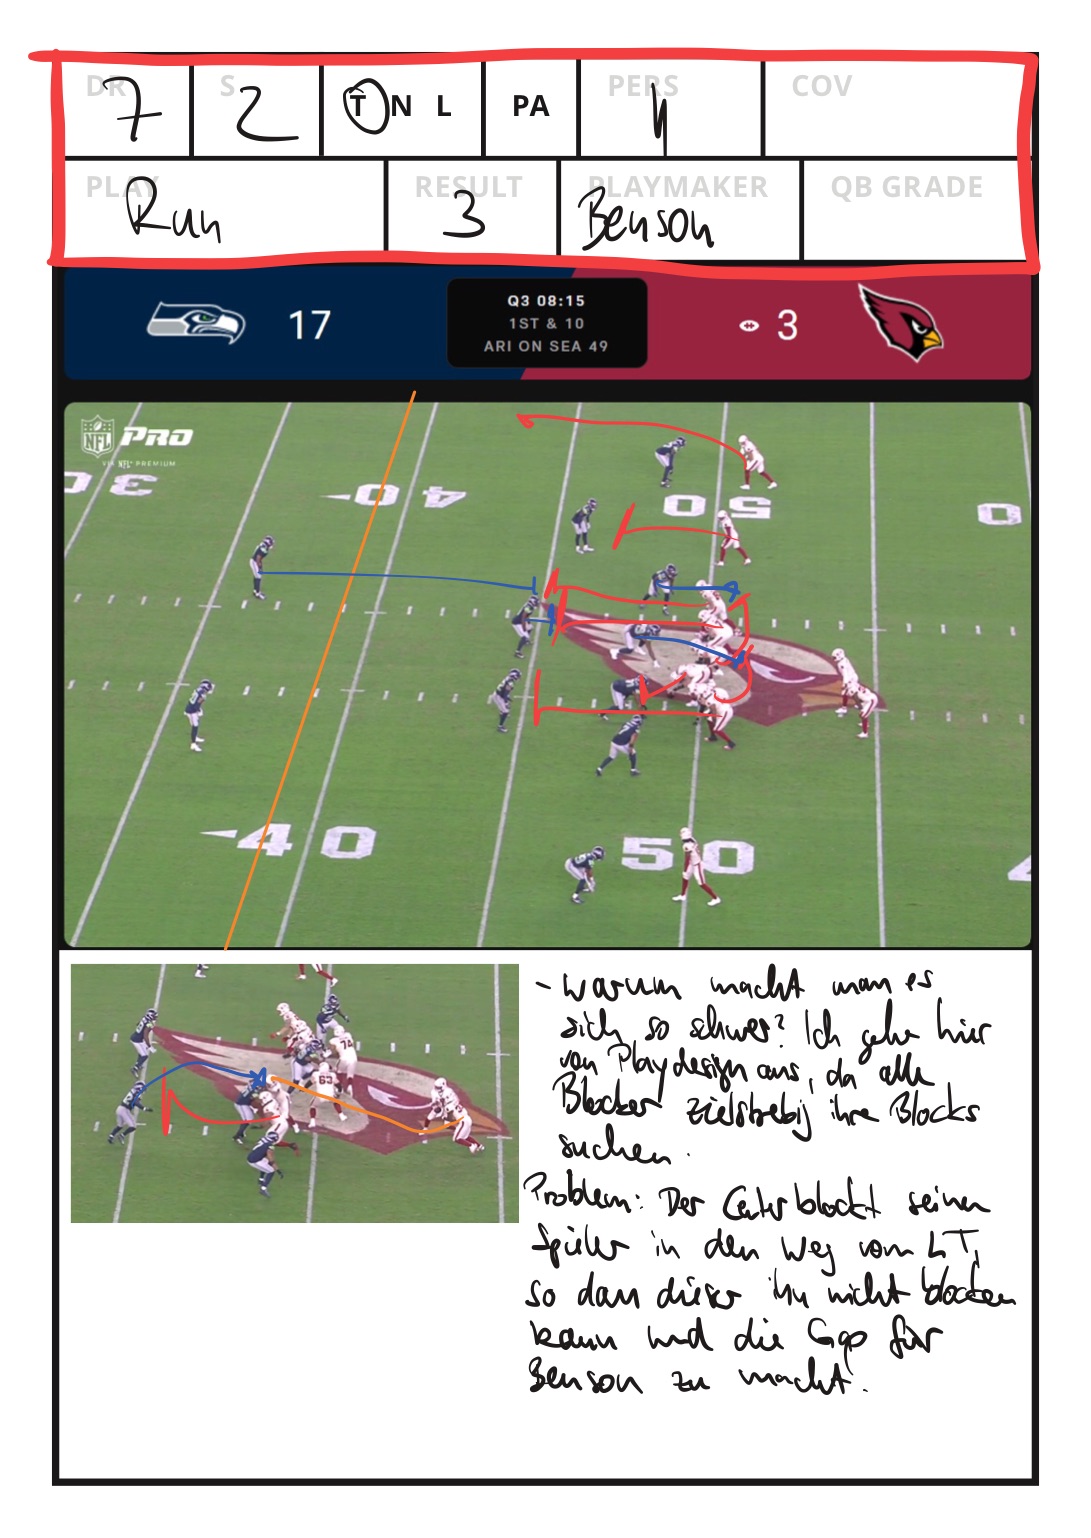 DR 7 S 2 T N L PA PERS 11 COV
PLAY Run RESULT 3 PLAYMAKER Benson QB GRADE
17 Q3 08:15 3
1ST & 10
ARI ON SEA 49
NFL PRO
VIA NFL+ PREMIUM
30 40 50 0
40 50 4
74
63
- Warum macht man es
sich so schwer? Ich gehe hier
von Playdesign aus, da alle
Blocker zielstrebig ihre Blocks
suchen.
Problem: Der Center blockt seinen
Spieler in den Weg vom LT,
so dass dieser ihn nicht blocken
kann und die Gap für
Benson zu macht.